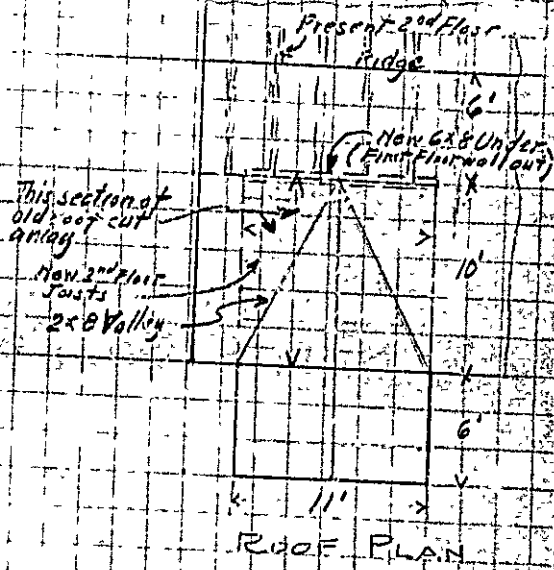 Present 2nd Floor
Ridge
6'
New 6x8 Under
(First Floor wall out)
This section of
old roof cut
away
10'
New 2nd Floor
Joists
2x8 Valley
6'
11'
ROOF PLAN